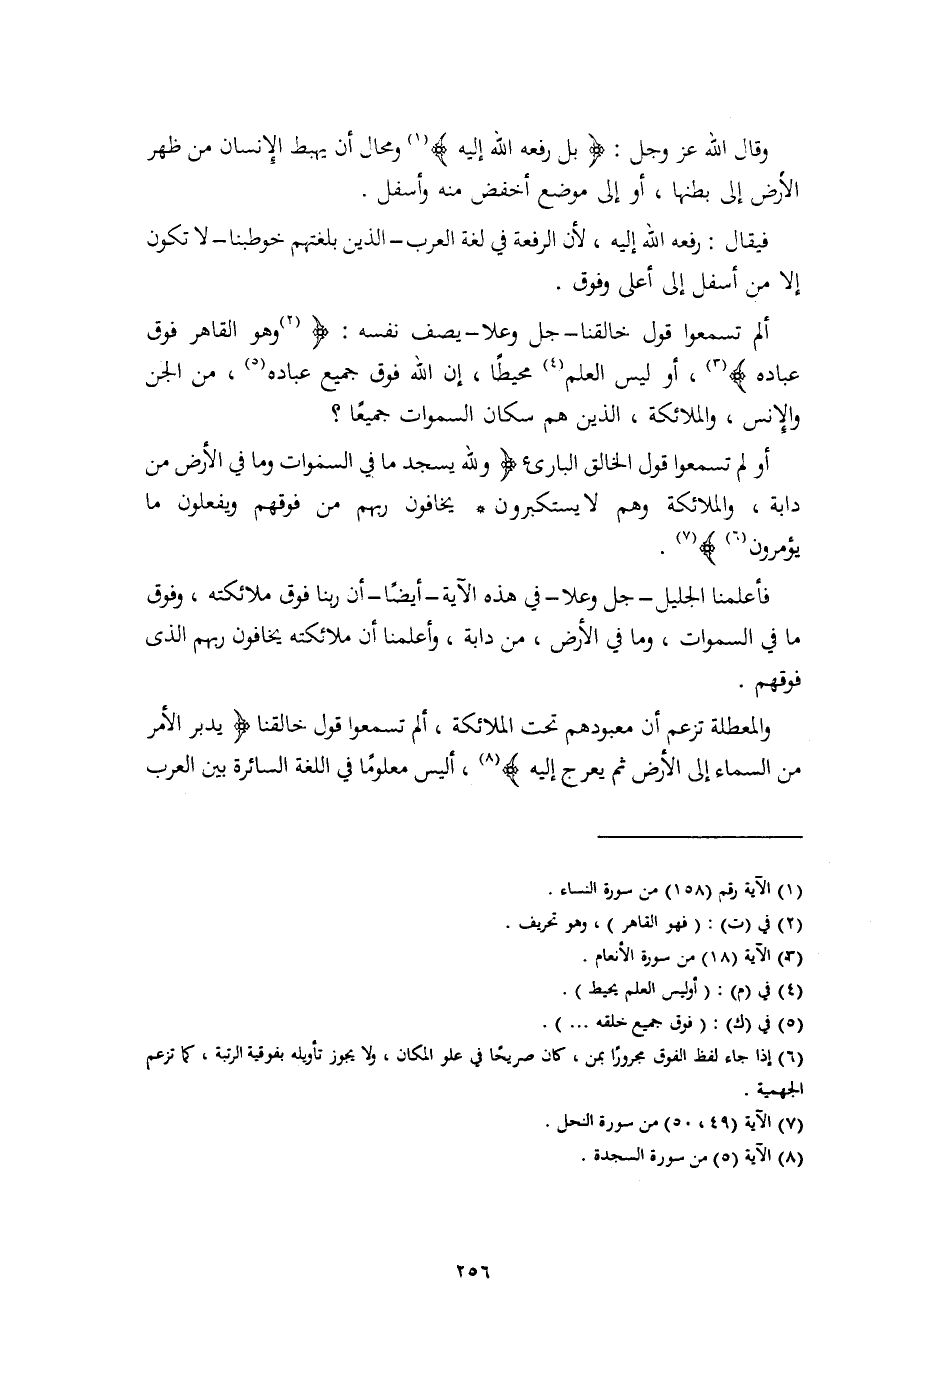 وقال الله عز وجل : ﴿ بل رفعه الله إليه ﴾(١) ومحال أن يهبط الإنسان من ظهر
الأرض إلى بطنها ، أو إلى موضع أخفض منه وأسفل .
فيقال : رفعه الله إليه ، لأن الرفعة في لغة العرب–الذين بلغتهم خوطبنا–لا تكون
إلا من أسفل إلى أعلى وفوق .
ألم تسمعوا قول خالقنا–جل وعلا–يصف نفسه : ﴿ (٢)وهو القاهر فوق
عباده ﴾(٣) ، أو ليس العلم(٤) محيطًا ، إن الله فوق جميع عباده(٥) ، من الجن
والإنس ، والملائكة ، الذين هم سكان السموات جميعًا ؟
أو لم تسمعوا قول الخالق البارئ ﴿ ولله يسجد ما في السموات وما في الأرض من
دابة ، والملائكة وهم لا يستكبرون * يخافون ربهم من فوقهم ويفعلون ما
يؤمرون(٦) ﴾(٧) .
فأعلمنا الجليل–جل وعلا–في هذه الآية–أيضًا–أن ربنا فوق ملائكته ، وفوق
ما في السموات ، وما في الأرض ، من دابة ، وأعلمنا أن ملائكته يخافون ربهم الذى
فوقهم .
والمعطلة تزعم أن معبودهم تحت الملائكة ، ألم تسمعوا قول خالقنا ﴿ يدبر الأمر
من السماء إلى الأرض ثم يعرج إليه ﴾(٨) ، أليس معلومًا في اللغة السائرة بين العرب
(١) الآية رقم (١٥٨) من سورة النساء .
(٢) في (ت) : ( فهو القاهر ) ، وهو تحريف .
(٣) الآية (١٨) من سورة الأنعام .
(٤) في (م) : ( أوليس العلم يحيط ) .
(٥) في (ك) : ( فوق جميع خلقه ... ) .
(٦) إذا جاء لفظ الفوق مجرورًا بمن ، كان صريحًا في علو المكان ، ولا يجوز تأويله بفوقية الرتبة ، كما تزعم
الجهمية .
(٧) الآية (٤٩ ، ٥٠) من سورة النحل .
(٨) الآية (٥) من سورة السجدة .
٢٥٦